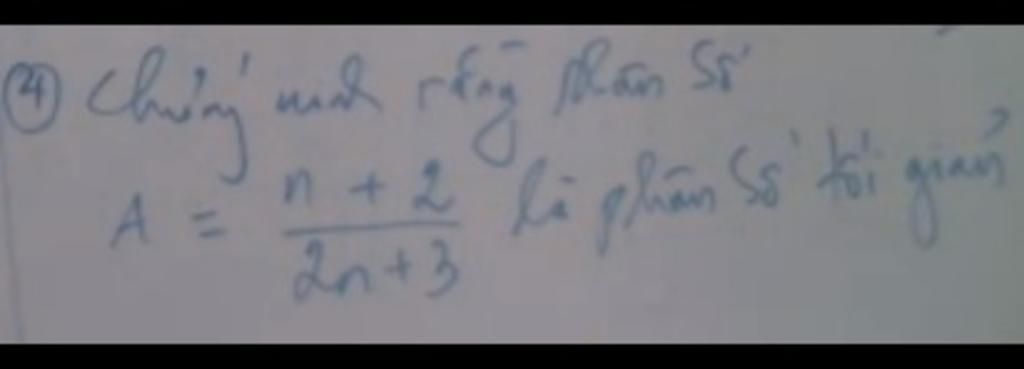 ④ Chứng minh rằng phân số
A = \frac{n + 2}{2n + 3} là phân số tối giản